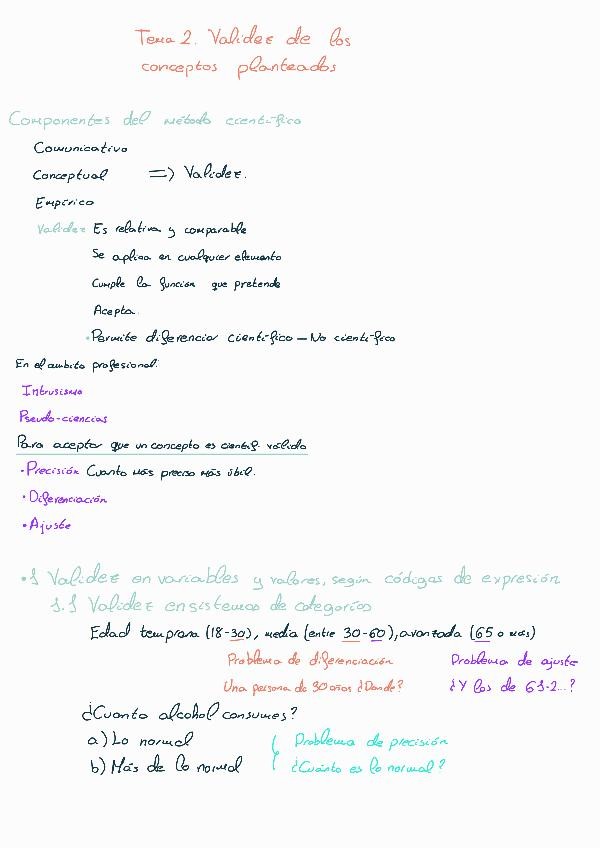 Tema 2. Validez de los
conceptos planteados
Componentes del método científico
Comunicativo
Conceptual => Validez.
Empírico
Validez Es relativa y comparable
Se aplica en cualquier elemento
Cumple la función que pretende
Acepta.
· Permite diferenciar científico – No científico
En el ámbito profesional:
Intrusismo
Pseudo-ciencias
Para aceptar que un concepto es cientif. válido
· Precisión Cuanto más preciso más útil.
· Diferenciación
· Ajuste
· 1 Validez en variables y valores, según códigos de expresión
1.1 Validez en sistemas de categorías
Edad temprana (18-30), media (entre 30-60), avanzada (65 o más)
Problema de diferenciación Problema de ajuste
Una persona de 30 años ¿Donde? ¿Y los de 61-2...?
¿Cuanto alcohol consumes?
a) Lo normal Problema de precisión
b) Más de lo normal ¿Cuánto es lo normal?